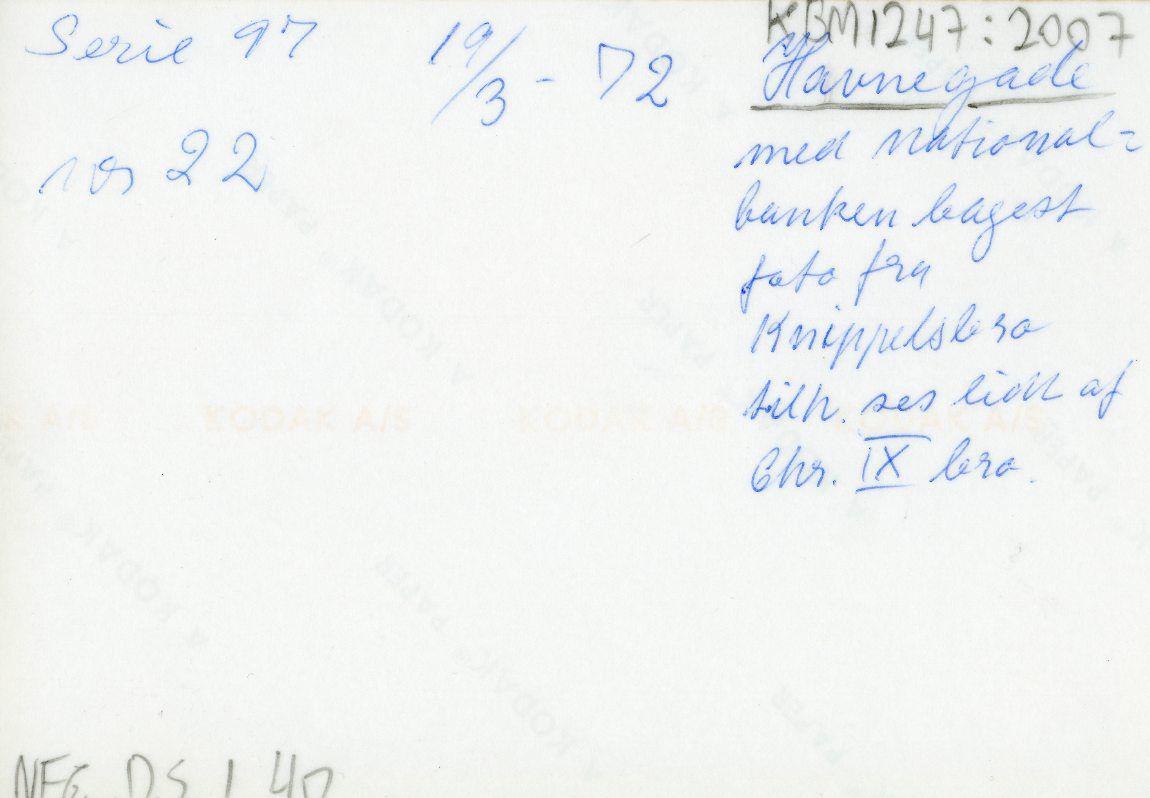 KBM1247:2007
Serie 97 19/3 - 72
nr 22
Havnegade
med national=
banken bagest
foto fra
Knippelsbro
tilh. ses lidt af
Chr. IX bro.
KODAK A/S KODAK A/S KODAK A/S
NEG. DS 1 40